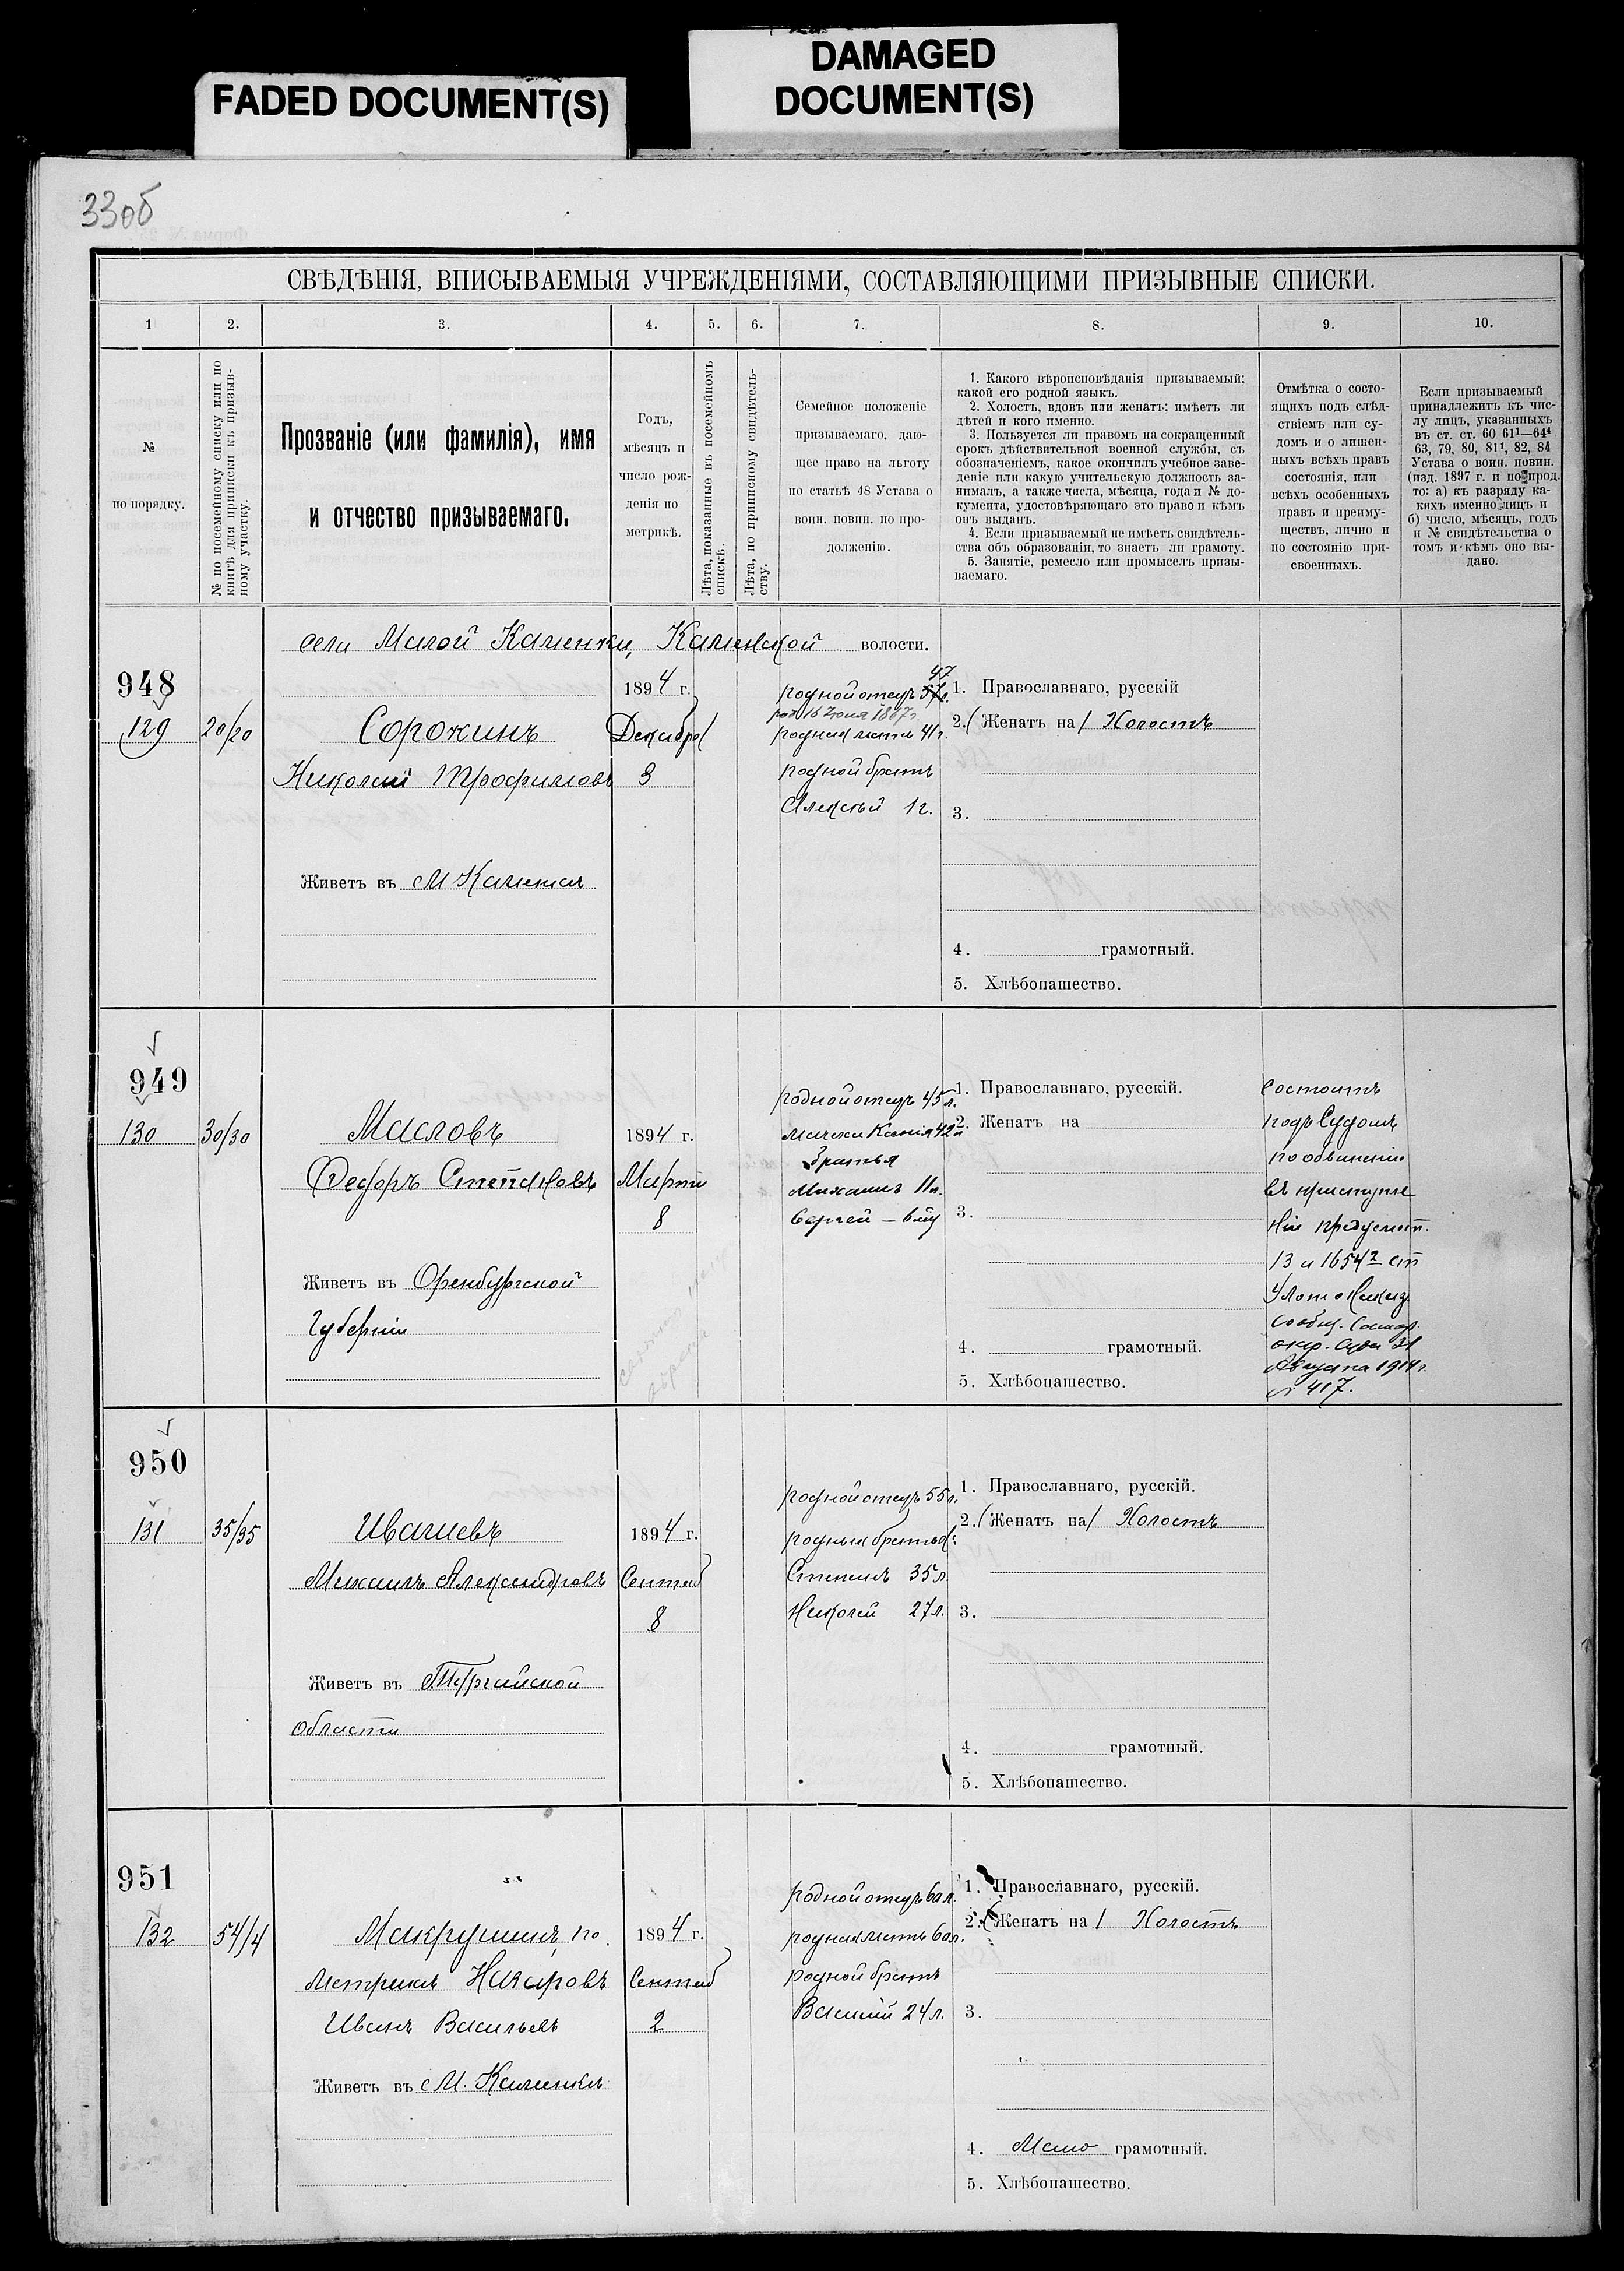 FADED DOCUMENT(S)
DAMAGED
DOCUMENT(S)
33об
СВѢДѢНІЯ, ВПИСЫВАЕМЫЯ УЧРЕЖДЕНІЯМИ, СОСТАВЛЯЮЩИМИ ПРИЗЫВНЫЕ СПИСКИ.
1
2.
3.
4.
5.
6.
7.
8.
9.
10.
№
по порядку.
№ по посемейному списку или по
книгѣ для приписки къ призыв-
ному участку.
Прозваніе (или фамилія), имя
и отчество призываемаго.
Годъ,
мѣсяцъ и
число рож-
денія по
метрикѣ.
Лѣта, показанныя въ посемейномъ
спискѣ.
Лѣта, по приписному свидѣтель-
ству.
Семейное положеніе
призываемаго, даю-
щее право на льготу
по статьѣ 48 Устава о
воин. повин. по про-
долженію.
1. Какого вѣроисповѣданія призываемый;
какой его родной языкъ.
2. Холостъ, вдовъ или женатъ; имѣетъ ли
дѣтей и кого именно.
3. Пользуется ли правомъ на сокращенный
срокъ дѣйствительной военной службы, съ
обозначеніемъ, какое окончилъ учебное заве-
деніе или какую учительскую должность за-
нималъ, а также числа, мѣсяца, года и № до-
кумента, удостовѣряющаго это право и кѣмъ
онъ выданъ.
4. Если призываемый не имѣетъ свидѣтель-
ства объ образованіи, то знаетъ ли грамоту.
5. Занятіе, ремесло или промыселъ призы-
ваемаго.
Отмѣтка о состо-
ящихъ подъ слѣд-
ствіемъ или су-
домъ и о лишен-
ныхъ всѣхъ правъ
состоянія, или
всѣхъ особенныхъ
правъ и преиму-
ществъ, лично и
по состоянію при-
своенныхъ.
Если призываемый
принадлежитъ къ чис-
лу лицъ, указанныхъ
въ ст. ст. 60 61¹—64⁴
63, 79, 80, 81¹, 82, 84
Устава о воин. повин.
(изд. 1897 г. и по прод.
то: а) къ разряду ка-
кихъ именно лицъ и
б) число, мѣсяцъ, годъ
и № свидѣтельства о
томъ и кѣмъ оно вы-
дано.
села Малой Каменки, Каменской волости.
948
129
20/20
Сорокинъ
Николай Трофимовъ
Живетъ въ М Каменка
1894 г.
Декабря
3
47
родной отецъ 57 л.
род 16 Іюля 1867 г.
родная мать 41 г.
родной братъ
Алексѣй 1 г.
1. Православнаго, русскій
2. (Женатъ на) Холостъ
3.
4. грамотный.
5. Хлѣбопашество.
949
130
30/30
Масловъ
Федоръ Степановъ
Живетъ въ Оренбургской
Губерніи
1894 г.
Марта
8
родной отецъ 45 л.
Мачеха Ксенія 42 л
братья
Михаилъ 11 л.
Сергей — 6 лѣт
1. Православнаго, русскій.
2. Женатъ на
3.
4. грамотный.
5. Хлѣбопашество.
Состоитъ
подъ Судомъ
по обвиненію
въ преступле
ніи предусмот.
13 и 1654² ст
Улож о Наказ.
Сообщ. Самар.
окр. Суда 31
Августа 1914 г.
№ 417.
950
131
35/35
Ивашевъ
Михаилъ Александровъ
Живетъ въ Тургайской
области
1894 г.
Сентяб
8
родной отецъ 55 л.
родныя братья:
Степанъ 35 л.
Николай 27 л.
1. Православнаго, русскій.
2. (Женатъ на) Холостъ
3.
4. грамотный.
5. Хлѣбопашество.
951
132
54/4
Макрушинъ, по
метрикѣ Назаровъ
Иванъ Васильевъ
Живетъ въ М. Каменкѣ
1894 г.
Сентяб
2
родной отецъ 60 л.
родная мать 60 л.
родной братъ
Василій 24 л.
1. Православнаго, русскій.
2. (Женатъ на) Холостъ
3.
4. Мало грамотный.
5. Хлѣбопашество.